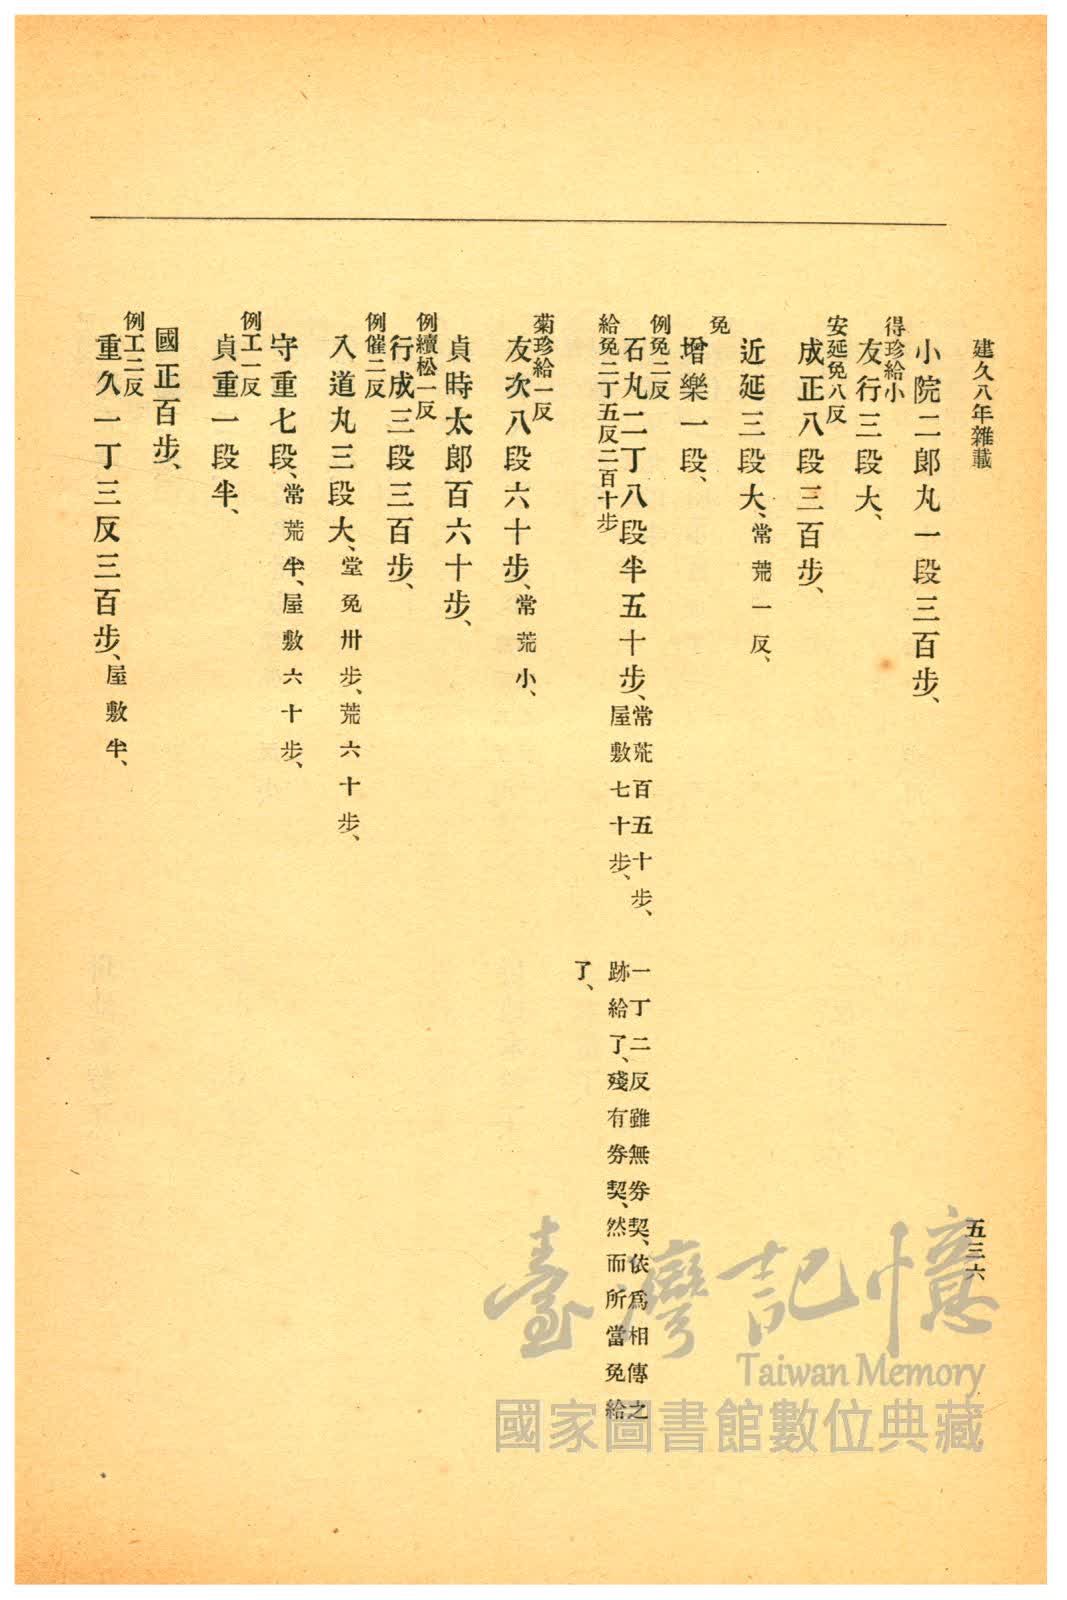 建久八年雜載
五三六
小院二郎丸一段三百步、
得珍給小
友行三段大、
安延免八反
成正八段三百步、
近延三段大、常荒一反、
免
增樂一段、
例免二反
石丸二丁八段半五十步、常荒百五十步、
屋敷七十步、
給免二丁五反二百十步
一丁二反雖無券契、依爲相傳之
跡給了、殘有券契、然而所當免給
了、
菊珍給一反
友次八段六十步、常荒小、
貞時太郎百六十步、
例續松一反
行成三段三百步、
例催二反
入道丸三段大、堂免卅步、荒六十步、
守重七段、常荒半、屋敷六十步、
例工一反
貞重一段半、
國正百步、
例工二反
重久一丁三反三百步、屋敷半、
臺灣記憶
Taiwan Memory
國家圖書館數位典藏